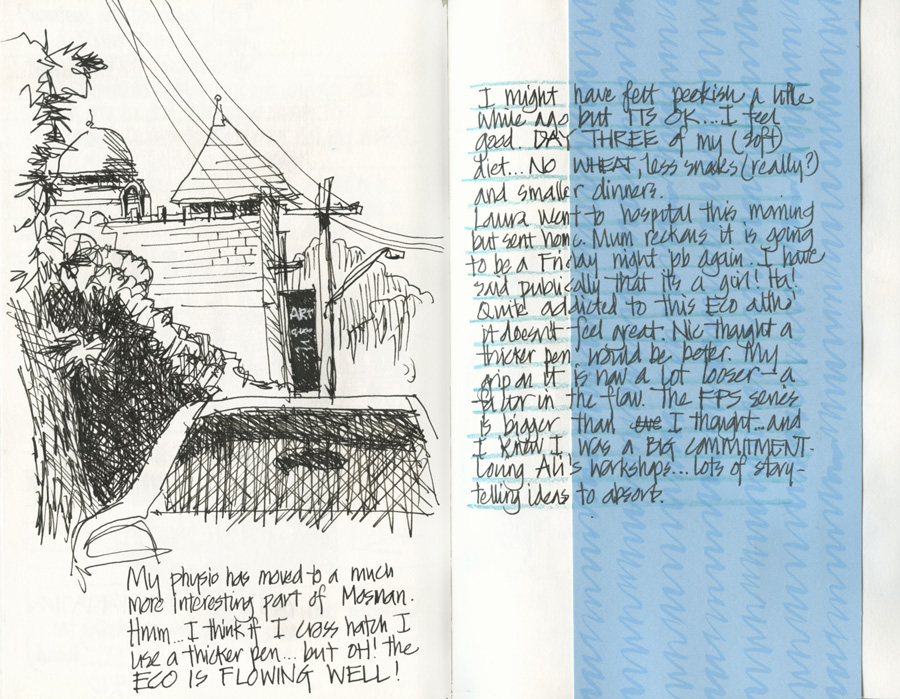 ART
My physio has moved to a much
more interesting part of Mosman.
Hmm...I think if I cross hatch I
use a thicker pen... but OH! the
ECO IS FLOWING WELL!
I might have felt peckish a little
while ago but ITS OK...I feel
good. DAY THREE of my (soft)
diet... NO WHEAT, less snacks (really?)
and smaller dinners.
Laura went to hospital this morning
but sent home. Mum reckons it is going
to be a Friday night job again. I have
said publically that its a girl! Ha!
Quite addicted to this Eco altho'
it doesn't feel great. Nic thought a
thicker pen would be better. My
grip on it is now a lot looser - a
factor in the flow. The EPS series
is bigger than I thought...and
I know I was a BIG COMMITMENT.
Loving Ali's workshops... lots of story-
telling ideas to absorb.